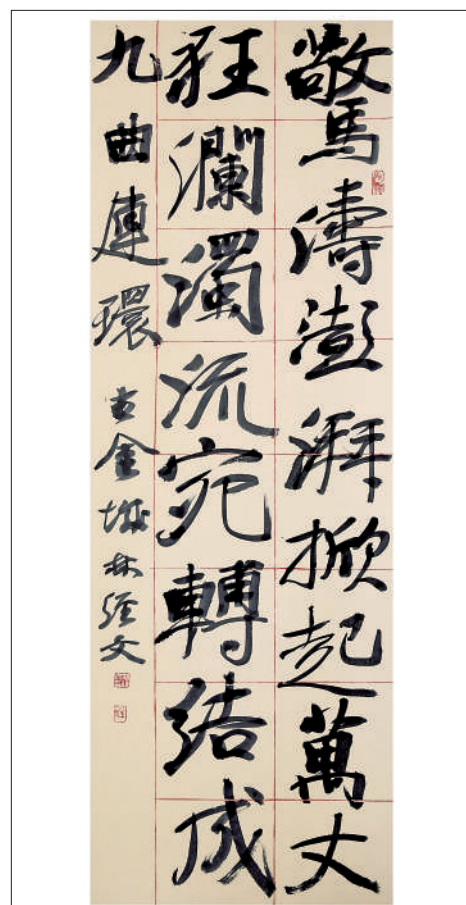 驚濤澎湃掀起萬丈
狂瀾濁流宛轉結成
九曲連環 古金城林經文